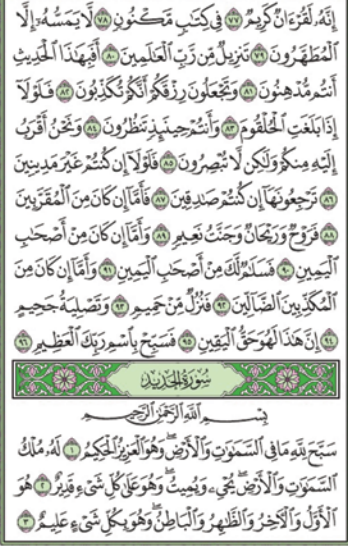 إِنَّهُۥ لَقُرْءَانٌ كَرِيمٌ ٧٧ فِى كِتَٰبٍ مَّكْنُونٍ ٧٨ لَّا يَمَسُّهُۥٓ إِلَّا
ٱلْمُطَهَّرُونَ ٧٩ تَنزِيلٌ مِّن رَّبِّ ٱلْعَٰلَمِينَ ٨٠ أَفَبِهَٰذَا ٱلْحَدِيثِ
أَنتُم مُّدْهِنُونَ ٨١ وَتَجْعَلُونَ رِزْقَكُمْ أَنَّكُمْ تُكَذِّبُونَ ٨٢ فَلَوْلَآ
إِذَا بَلَغَتِ ٱلْحُلْقُومَ ٨٣ وَأَنتُمْ حِينَئِذٍ تَنظُرُونَ ٨٤ وَنَحْنُ أَقْرَبُ
إِلَيْهِ مِنكُمْ وَلَٰكِن لَّا تُبْصِرُونَ ٨٥ فَلَوْلَآ إِن كُنتُمْ غَيْرَ مَدِينِينَ
٨٦ تَرْجِعُونَهَآ إِن كُنتُمْ صَٰدِقِينَ ٨٧ فَأَمَّآ إِن كَانَ مِنَ ٱلْمُقَرَّبِينَ
٨٨ فَرَوْحٌ وَرَيْحَانٌ وَجَنَّتُ نَعِيمٍ ٨٩ وَأَمَّآ إِن كَانَ مِنْ أَصْحَٰبِ
ٱلْيَمِينِ ٩٠ فَسَلَٰمٌ لَّكَ مِنْ أَصْحَٰبِ ٱلْيَمِينِ ٩١ وَأَمَّآ إِن كَانَ مِنَ
ٱلْمُكَذِّبِينَ ٱلضَّآلِّينَ ٩٢ فَنُزُلٌ مِّنْ حَمِيمٍ ٩٣ وَتَصْلِيَةُ جَحِيمٍ
٩٤ إِنَّ هَٰذَا لَهُوَ حَقُّ ٱلْيَقِينِ ٩٥ فَسَبِّحْ بِٱسْمِ رَبِّكَ ٱلْعَظِيمِ ٩٦
سُورَةُ الحَدِيدِ
بِسْمِ ٱللَّهِ ٱلرَّحْمَٰنِ ٱلرَّحِيمِ
سَبَّحَ لِلَّهِ مَا فِى ٱلسَّمَٰوَٰتِ وَٱلْأَرْضِ ۖ وَهُوَ ٱلْعَزِيزُ ٱلْحَكِيمُ ١ لَهُۥ مُلْكُ
ٱلسَّمَٰوَٰتِ وَٱلْأَرْضِ ۖ يُحْىِۦ وَيُمِيتُ ۖ وَهُوَ عَلَىٰ كُلِّ شَىْءٍ قَدِيرٌ ٢ هُوَ
ٱلْأَوَّلُ وَٱلْءَاخِرُ وَٱلظَّٰهِرُ وَٱلْبَاطِنُ ۖ وَهُوَ بِكُلِّ شَىْءٍ عَلِيمٌ ٣